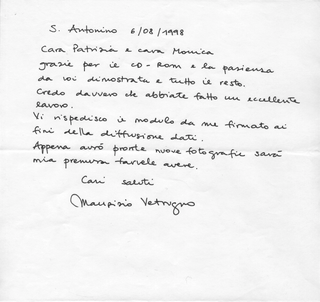 S. Antonino 6/08/1998
Cara Patrizia e cara Monica
grazie per il CD-Rom e la pazienza
da voi dimostrata e tutto il resto.
Credo davvero che abbiate fatto un eccellente
lavoro.
Vi rispedisco il modulo da me firmato ai
fini della diffusione dati.
Appena avrò pronte nuove fotografie sarà
mia premura farvele avere.
Cari saluti
Maurizio Vetrugno